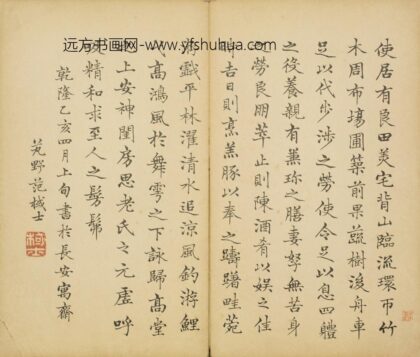 远方书画网-www.yfshuhua.com
使居有良田美宅背山臨流環帀竹
木周布塲圃築前果蓏樹後舟車
足以代步涉之勞使令足以息四體
之役養親有兼珍之膳妻孥無苦身
之勞良朋萃止則陳酒肴以娛之佳
時吉日則烹羔豚以奉之躊躇畦菀
遊戲平林濯清水追涼風釣游鯉
弋高鴻風於舞雩之下詠歸高堂
之上安神閨房思老氏之元虛呼
吸精和求至人之髣髴
乾隆乙亥四月上旬書於長安寓齋
芄野范棫士